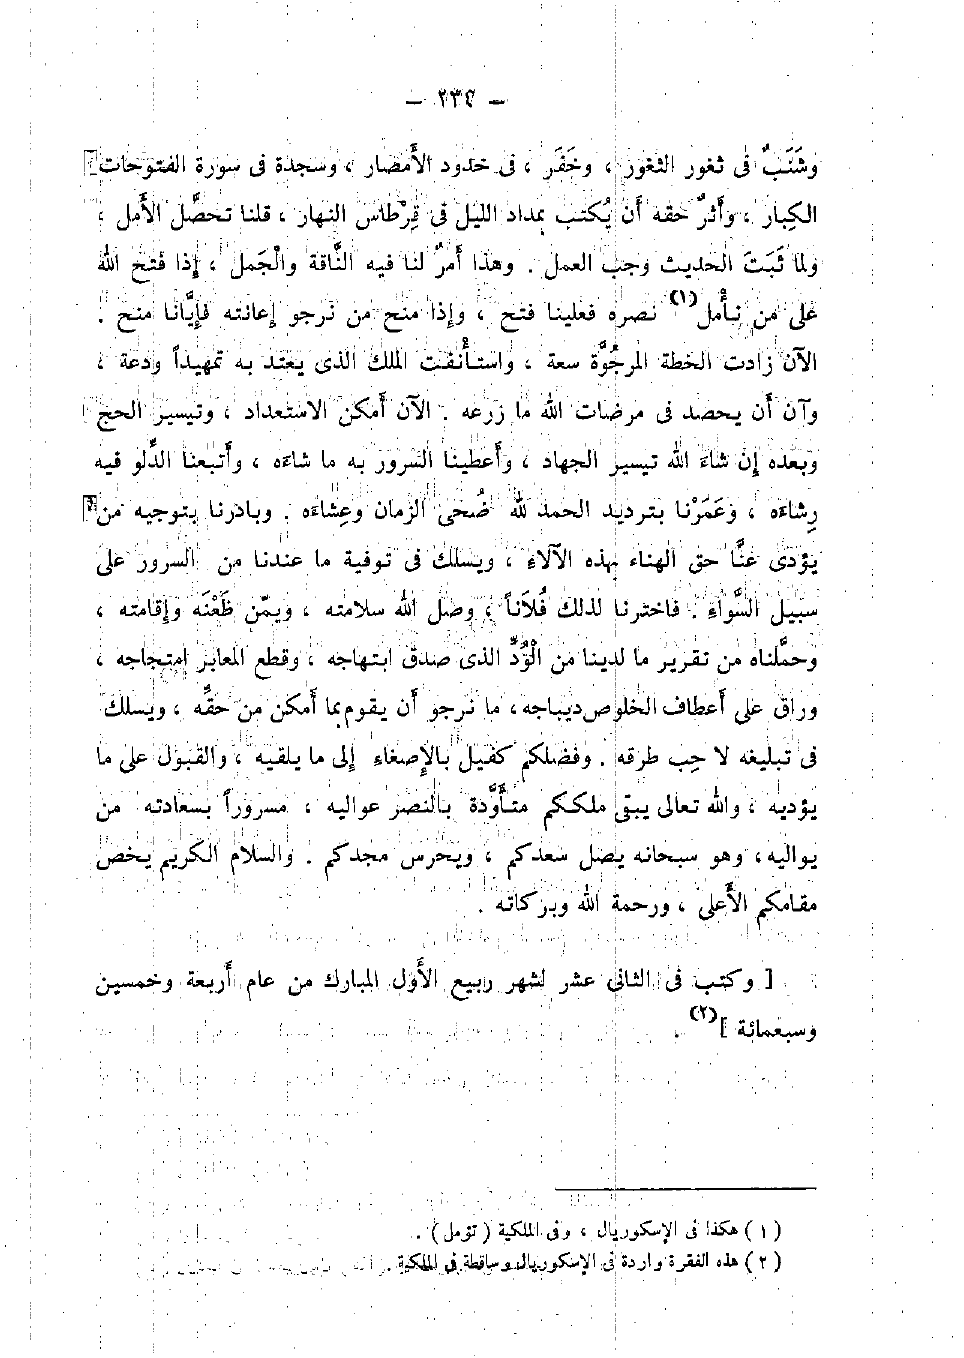 — ٢٣٤ —
وشَنَبٌ فى ثغور الثغور ، وخَفَر ، فى خدود الأَمصار ، وسجدة فى سورة الفتوحات
الكِبار ، وأَثرٌ حقه أَن يُكتب بمداد الليل فى قِرْطاس النهار ، قلنا تحصَّل الأَمل ،
ولما ثَبَتَ الحديث وجب العمل . وهذا أَمرٌ لنا فيه النَّاقة والْجَمل ، إذا فتح الله
على من نأْمل(١) نصره فعلينا فتح ، وإذا منح من نرجو إعانته فإِيَّانا منح .
الآن زادت الخطة المرجُوَّة سعة ، واستأْنفت الملك الذى يعتد به تمهيداً ودعة ،
وآن أَن يحصد فى مرضات الله ما زرعه . الآن أَمكن الاستعداد ، وتيسير الحج
وبعده إِن شاءَ الله تيسير الجهاد ، وأَعطينا السرور به ما شاءَه ، وأَتبعنا الدَّلو فيه
رِشاءَه ، وعَمَرْنا بترديد الحمد لله ضُحَى الزمان وعِشاءَه . وبادرنا بتوجيه من
يؤدى عنَّا حق الهناء بهذه الآلاءِ ، ويسلك فى توفية ما عندنا من السرور على
سبيل السَّواءِ . فاخترنا لذلك فُلَاناً ، وصل الله سلامته ، ويمّن ظَعْنَه وإِقامته ،
وحمَّلناه من تقرير ما لدينا من الْوُدِّ الذى صدق ابتهاجه ، وقطع المعابر امتجاجه ،
وراق على أَعطاف الخلوص ديباجه، ما نرجو أَن يقوم بما أَمكن من حقِّه ، ويسلك
فى تبليغه لا حِب طرقه . وفضلكم كفيل بالإِصغاءِ إِلى ما يلقيه ، والقبول على ما
يؤديه ، والله تعالى يبقى ملككم متأَوَّدة بالنصر عواليه ، مسروراً بسعادته من
يواليه، وهو سبحانه يصل سعدكم ، ويحرس مجدكم . والسلام الكريم يخص
مقامكم الأَعلى ، ورحمة الله وبركاته .
[ وكتب فى الثانى عشر لشهر ربيع الأَول المبارك من عام أَربعة وخمسين
وسبعمائة ](٢) .
( ١ ) هكذا فى الإسكوريال ، وفى الملكية ( تؤمل ) .
( ٢ ) هذه الفقرة واردة فى الإسكوريال وساقطة فى الملكية .